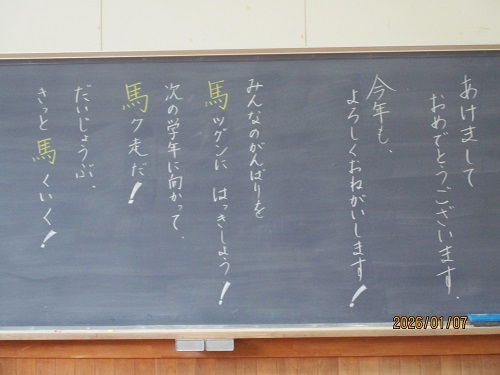 あけまして
おめでとうございます。
今年も、
よろしくおねがいします!
みんなのがんばりを
馬ツグンに はっきしよう!
次の学年に向かって、
馬ク走だ!
だいじょうぶ、
きっと馬くいく!
2026/01/07